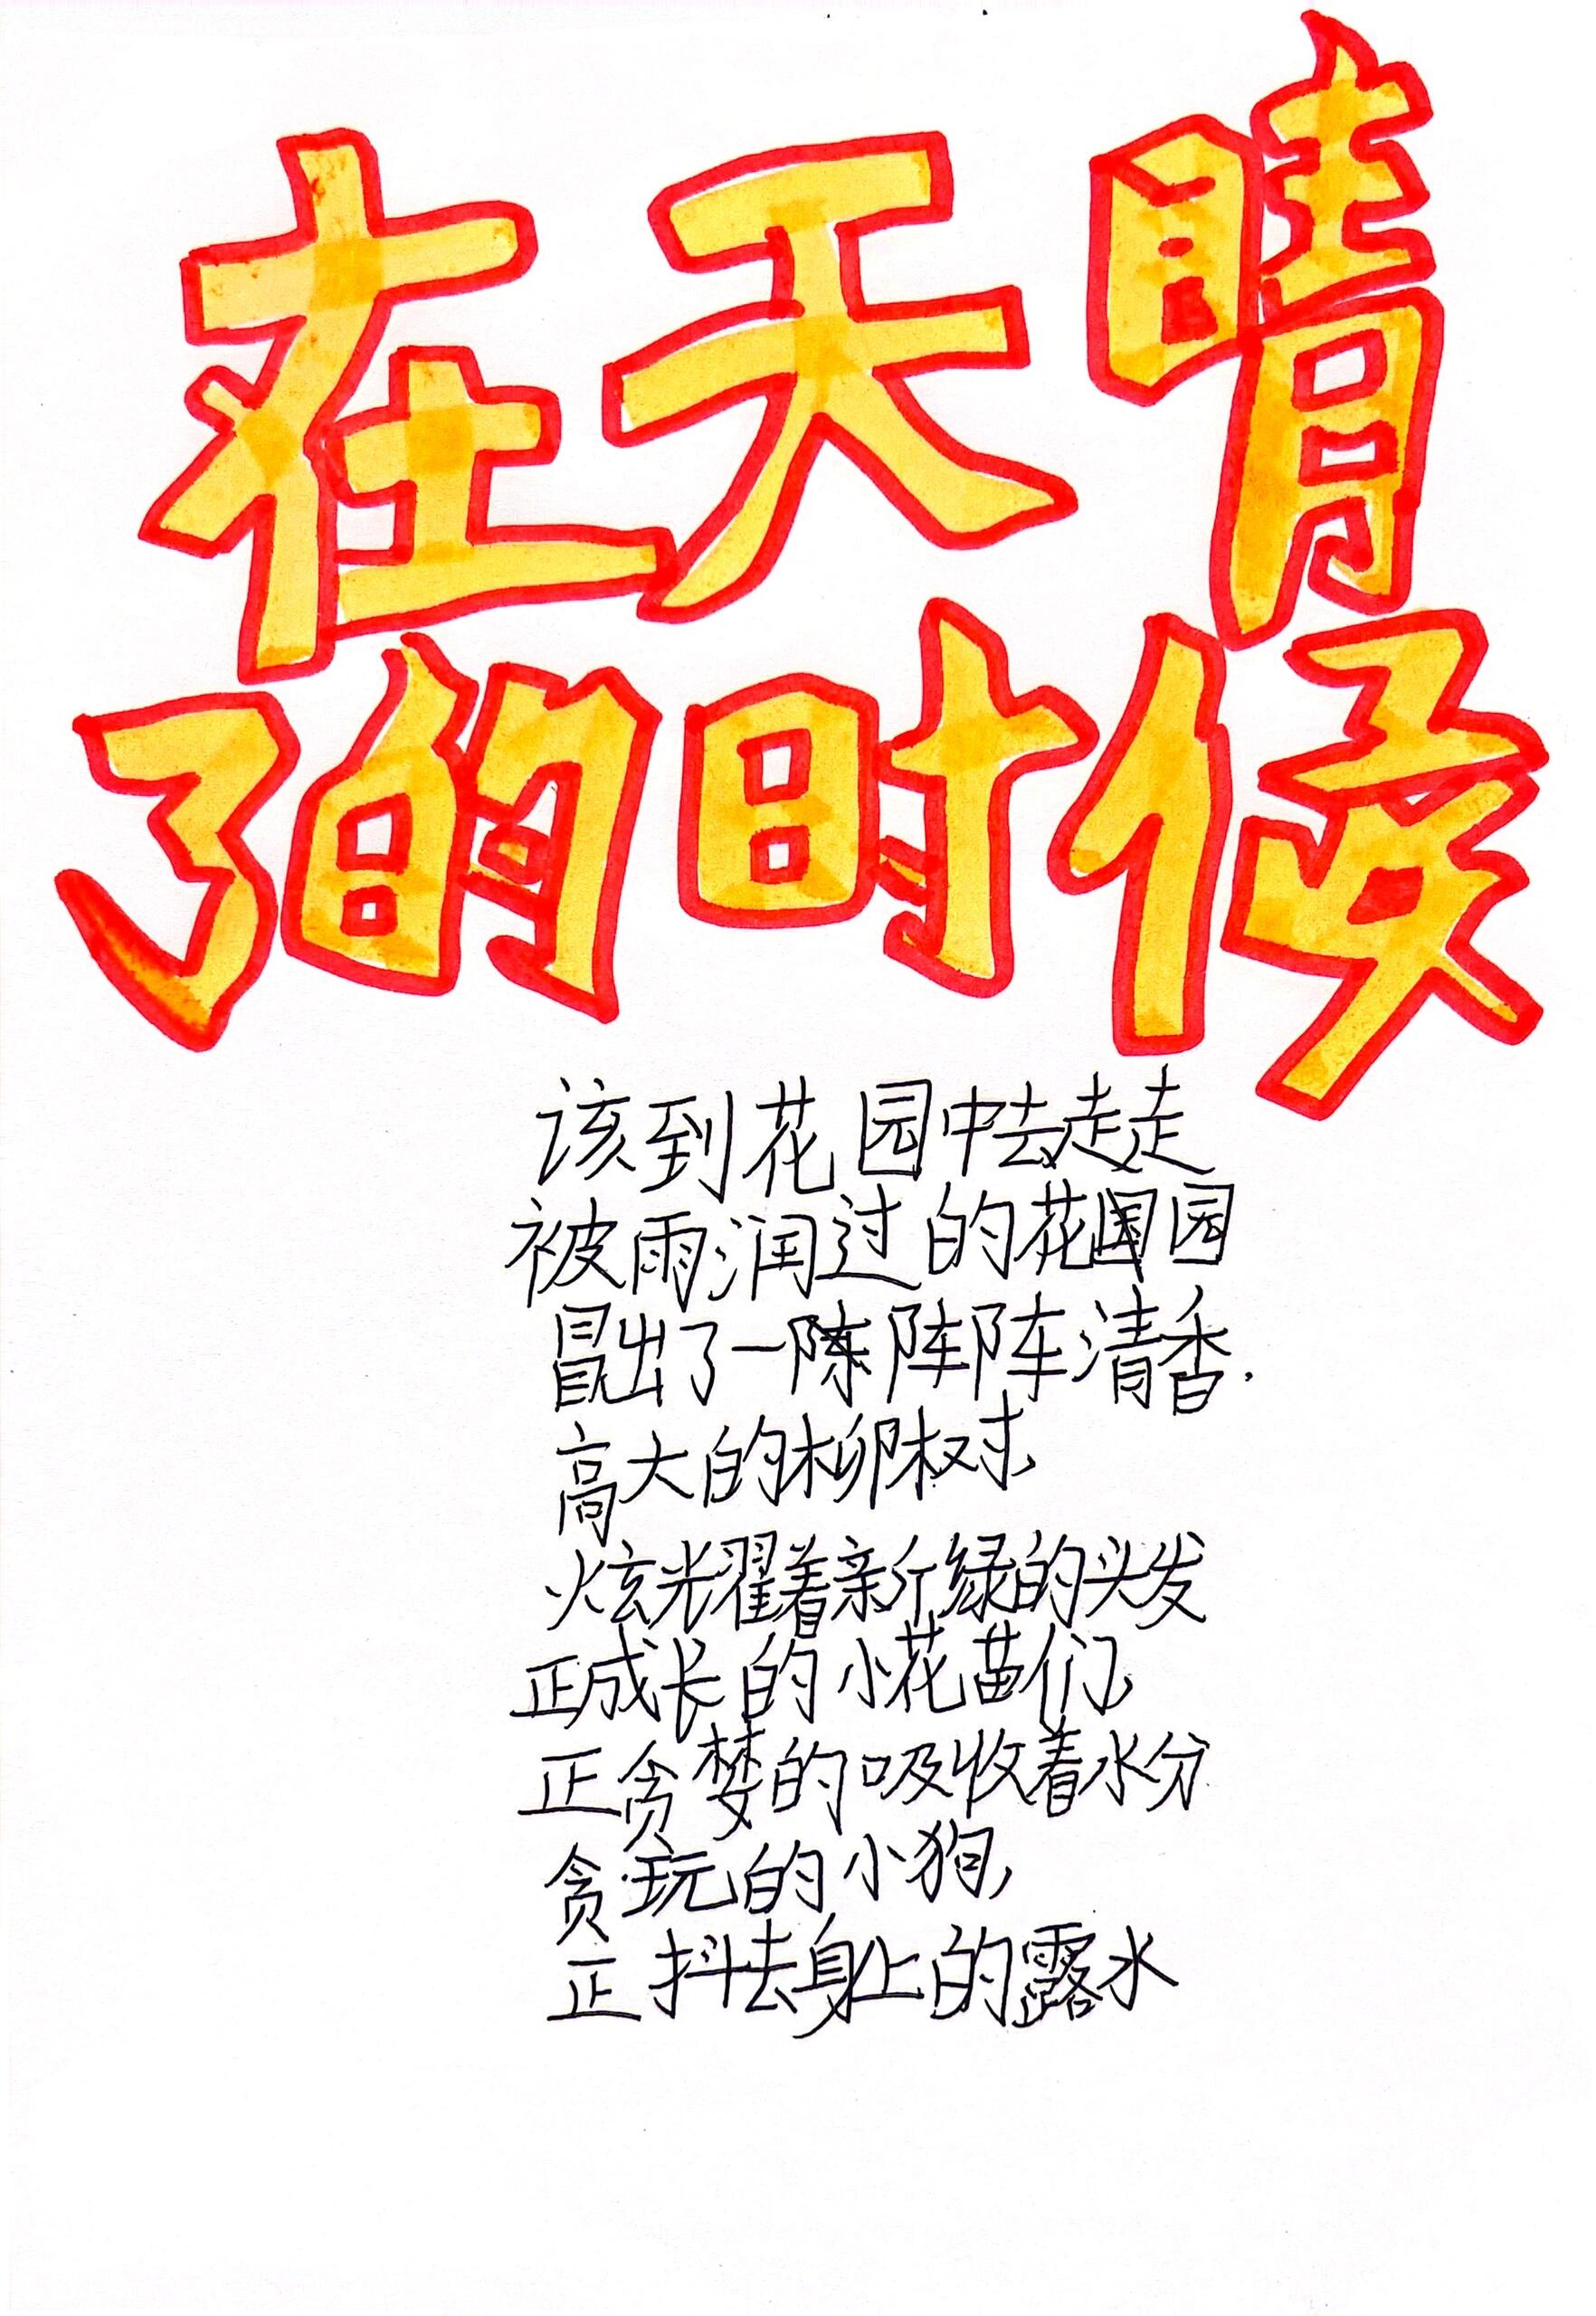 在天晴
了的时候
该到花园中去走走
被雨润过的花园
冒出了一阵阵清香.
高大的柳树,
炫耀着新绿的头发
正成长的小花苗们,
正贪婪的吸收着水分
贪玩的小狗,
正抖去身上的露水